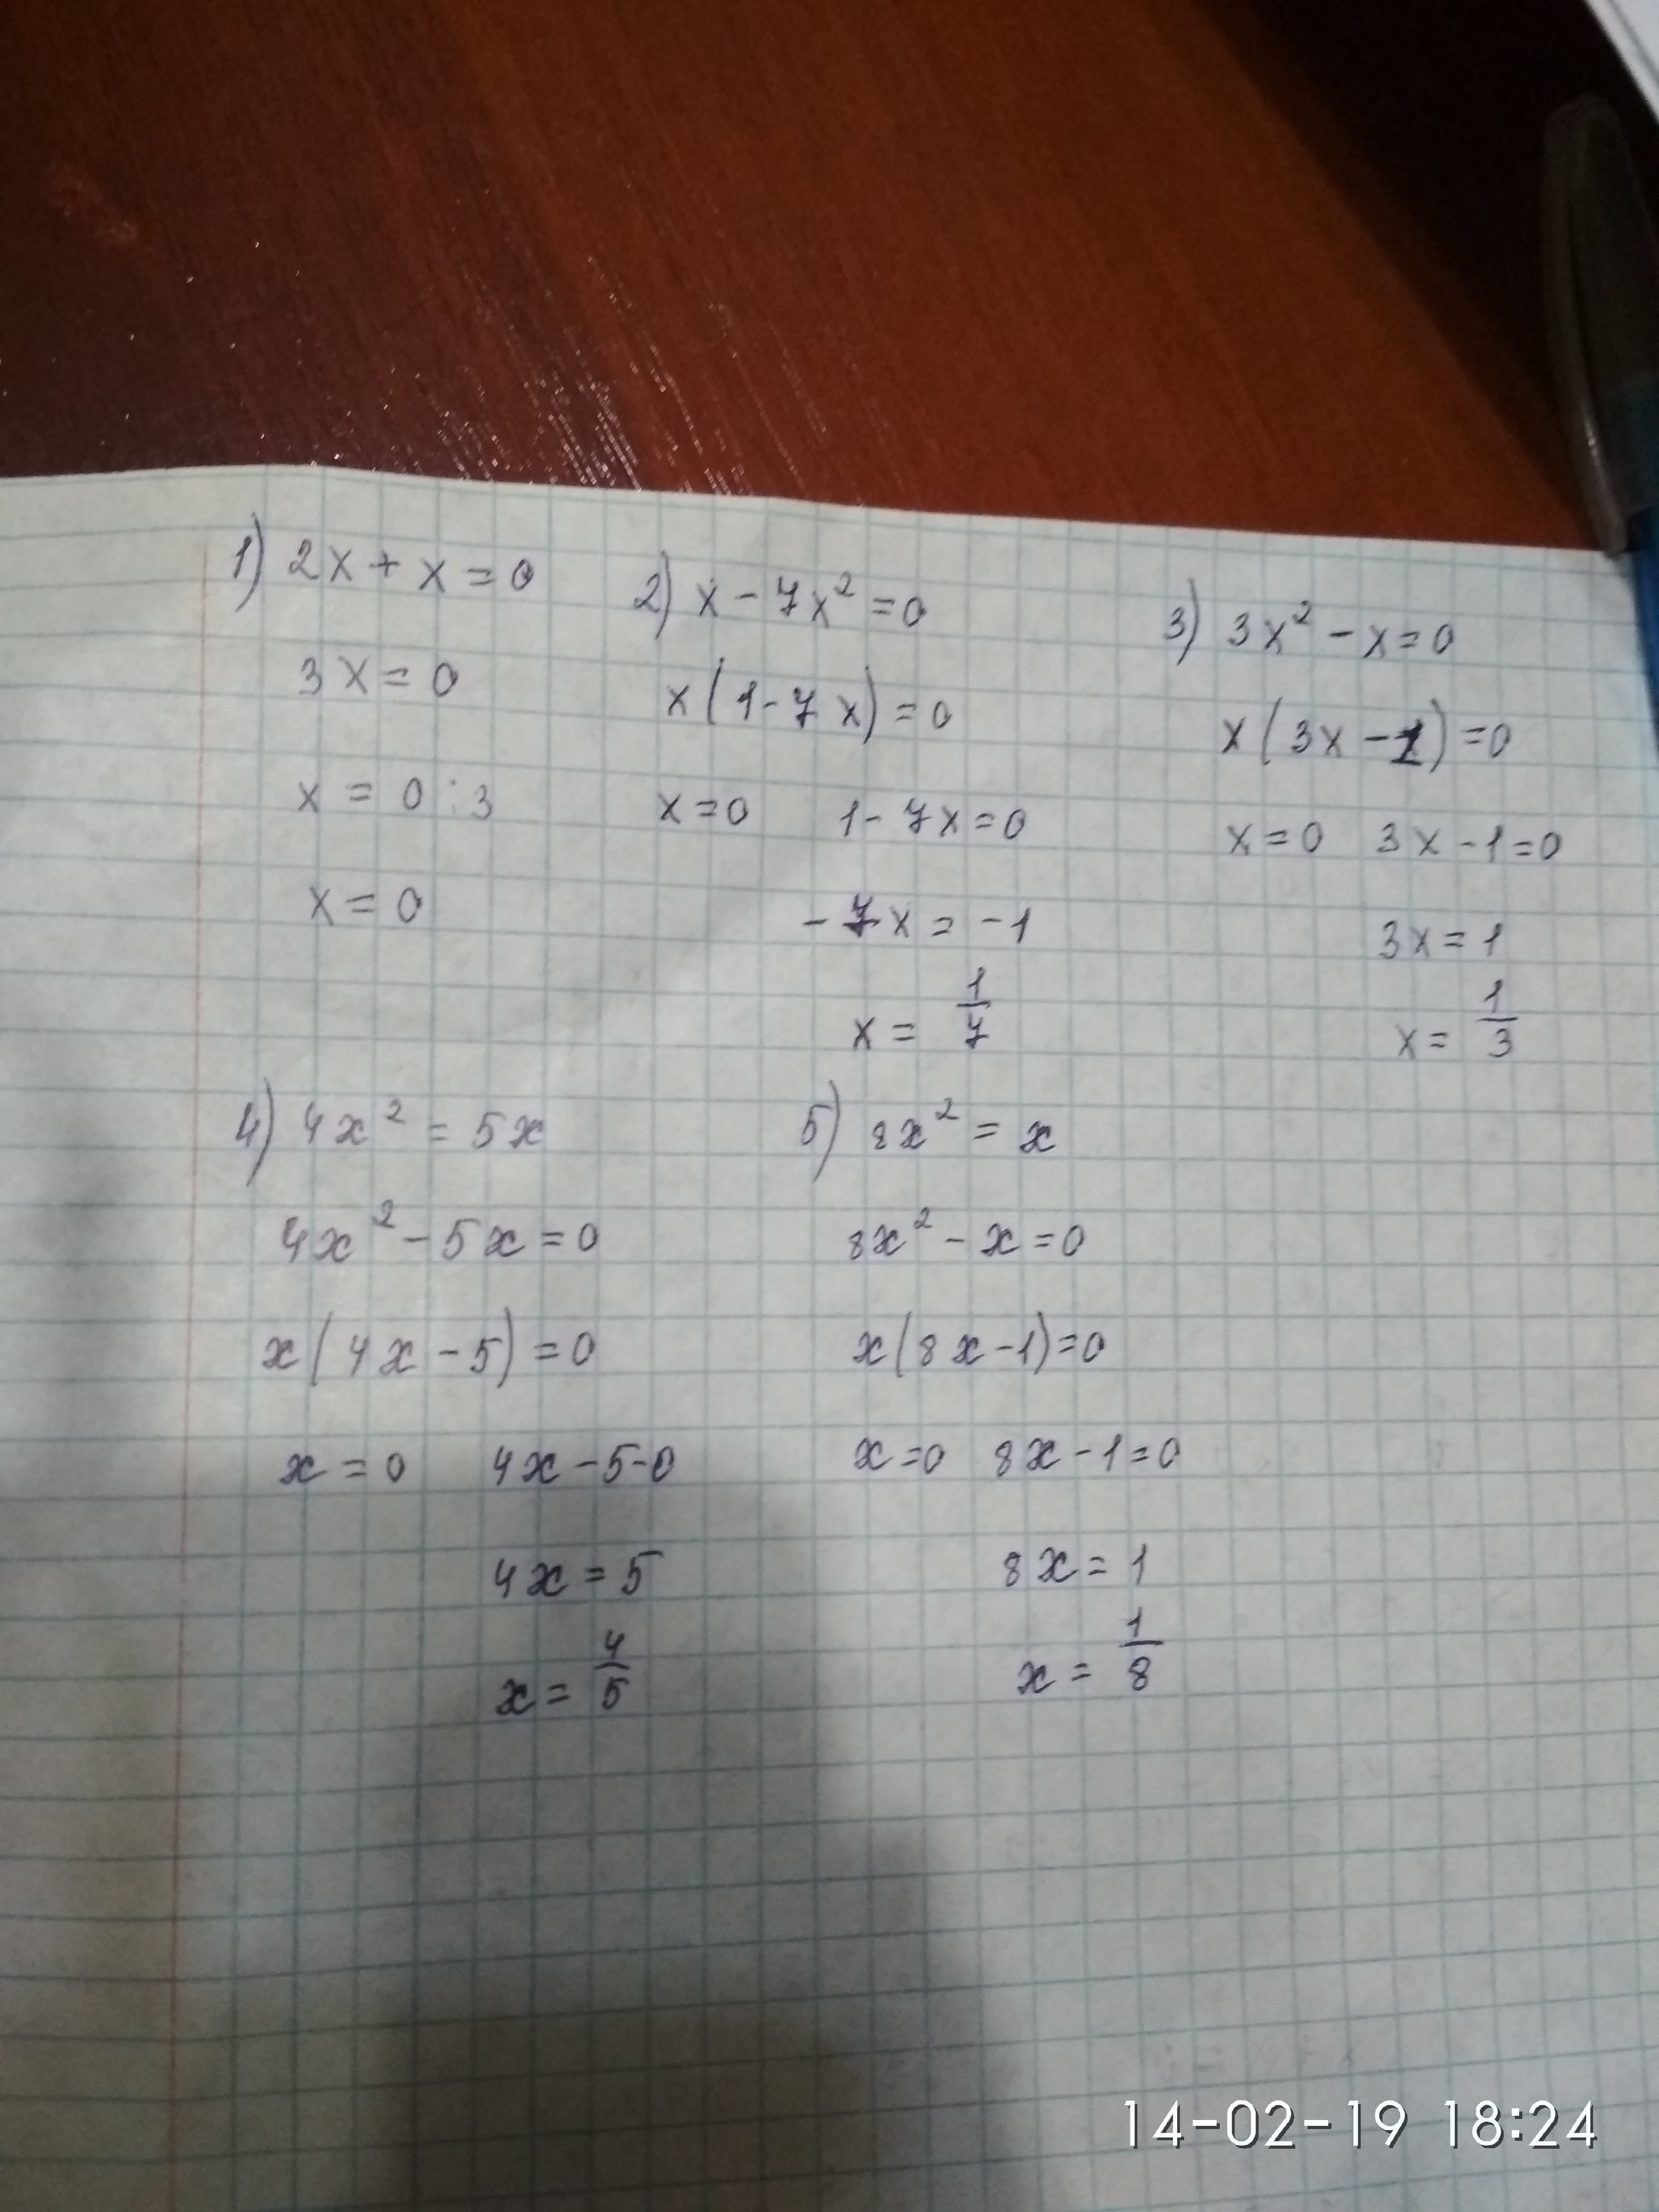 1) 2x + x = 0
3x = 0
x = 0 : 3
x = 0
2) x - 7x² = 0
x(1 - 7x) = 0
x = 0 1 - 7x = 0
- 7x = -1
x = 1/7
3) 3x² - x = 0
x(3x - 1) = 0
x = 0 3x - 1 = 0
3x = 1
x = 1/3
4) 4x² = 5x
4x² - 5x = 0
x(4x - 5) = 0
x = 0 4x - 5 - 0
4x = 5
x = 4/5
5) 8x² = x
8x² - x = 0
x(8x - 1) = 0
x = 0 8x - 1 = 0
8x = 1
x = 1/8
14-02-19 18:24